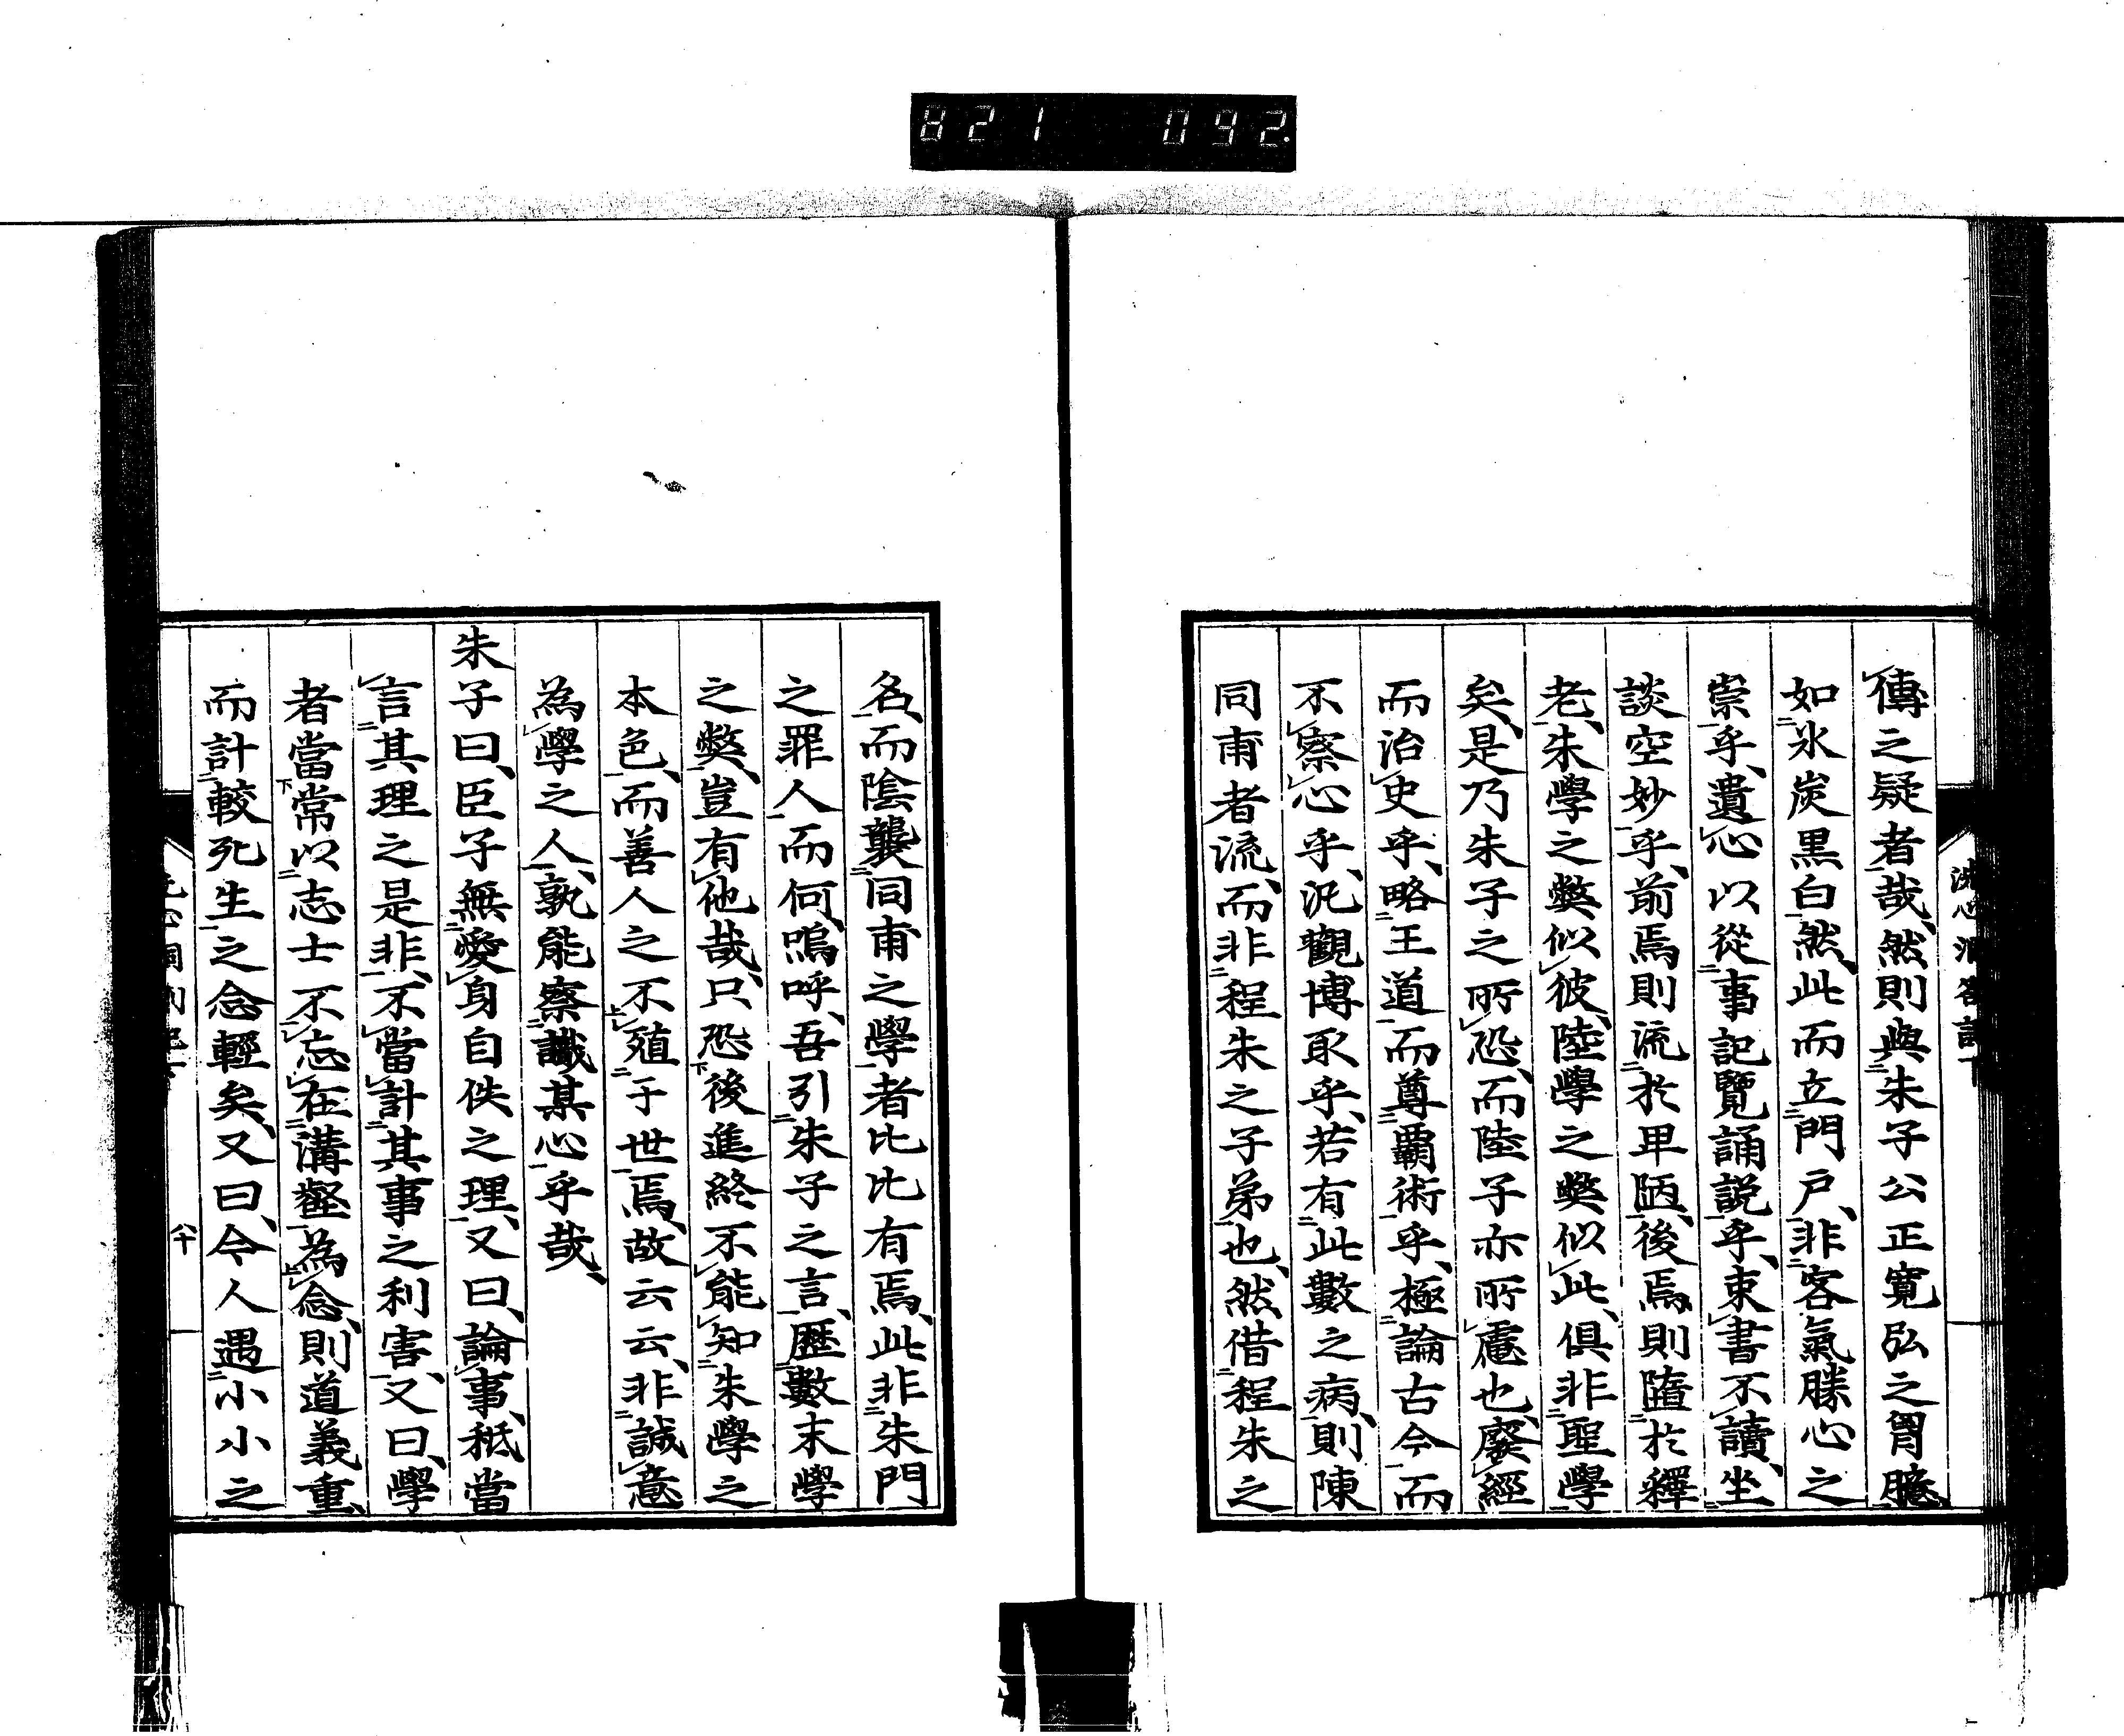 821 092
傳之疑者哉、然則與朱子公正寛弘之胷臆、
如氷炭黒白然、此而立門戸、非客氣勝心之
崇乎、遺心以從事記覽誦説乎、束書不讀、坐
談空妙乎、前焉則流於卑陋、後焉則隋於釋
老、朱學之獘似彼、陸學之獘似此、倶非聖學
矣、是乃朱子之所恐、而陸子亦所慮也、廢經
而治史乎、略王道而尊覇術乎、極論古今而
不察心乎、汎觀博取乎、若有此數之病、則陳
同甫者流、而非程朱之子弟也、然借程朱之
名、而陰襲同甫之學者比比有焉、此非朱門
之罪人而何、嗚呼、吾引朱子之言、歷數末學
之獘、豈有他哉、只恐後進終不能知朱學之
本色、而善人之不殖于世焉、故云云、非誠意
為學之人、孰能察識其心乎哉、
朱子曰、臣子無愛身自佚之理、又曰、論事、秪當
言其理之是非、不當計其事之利害、又曰、學
者當常以志士不忘在溝壑為念、則道義重、
而計較死生之念輕矣、又曰、今人遇小小之
八十